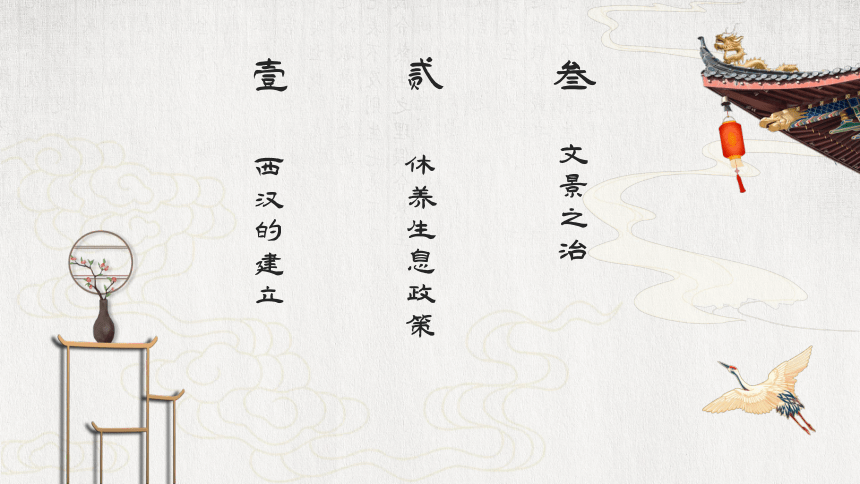 壹
西汉的建立
贰
休养生息政策
叁
文景之治